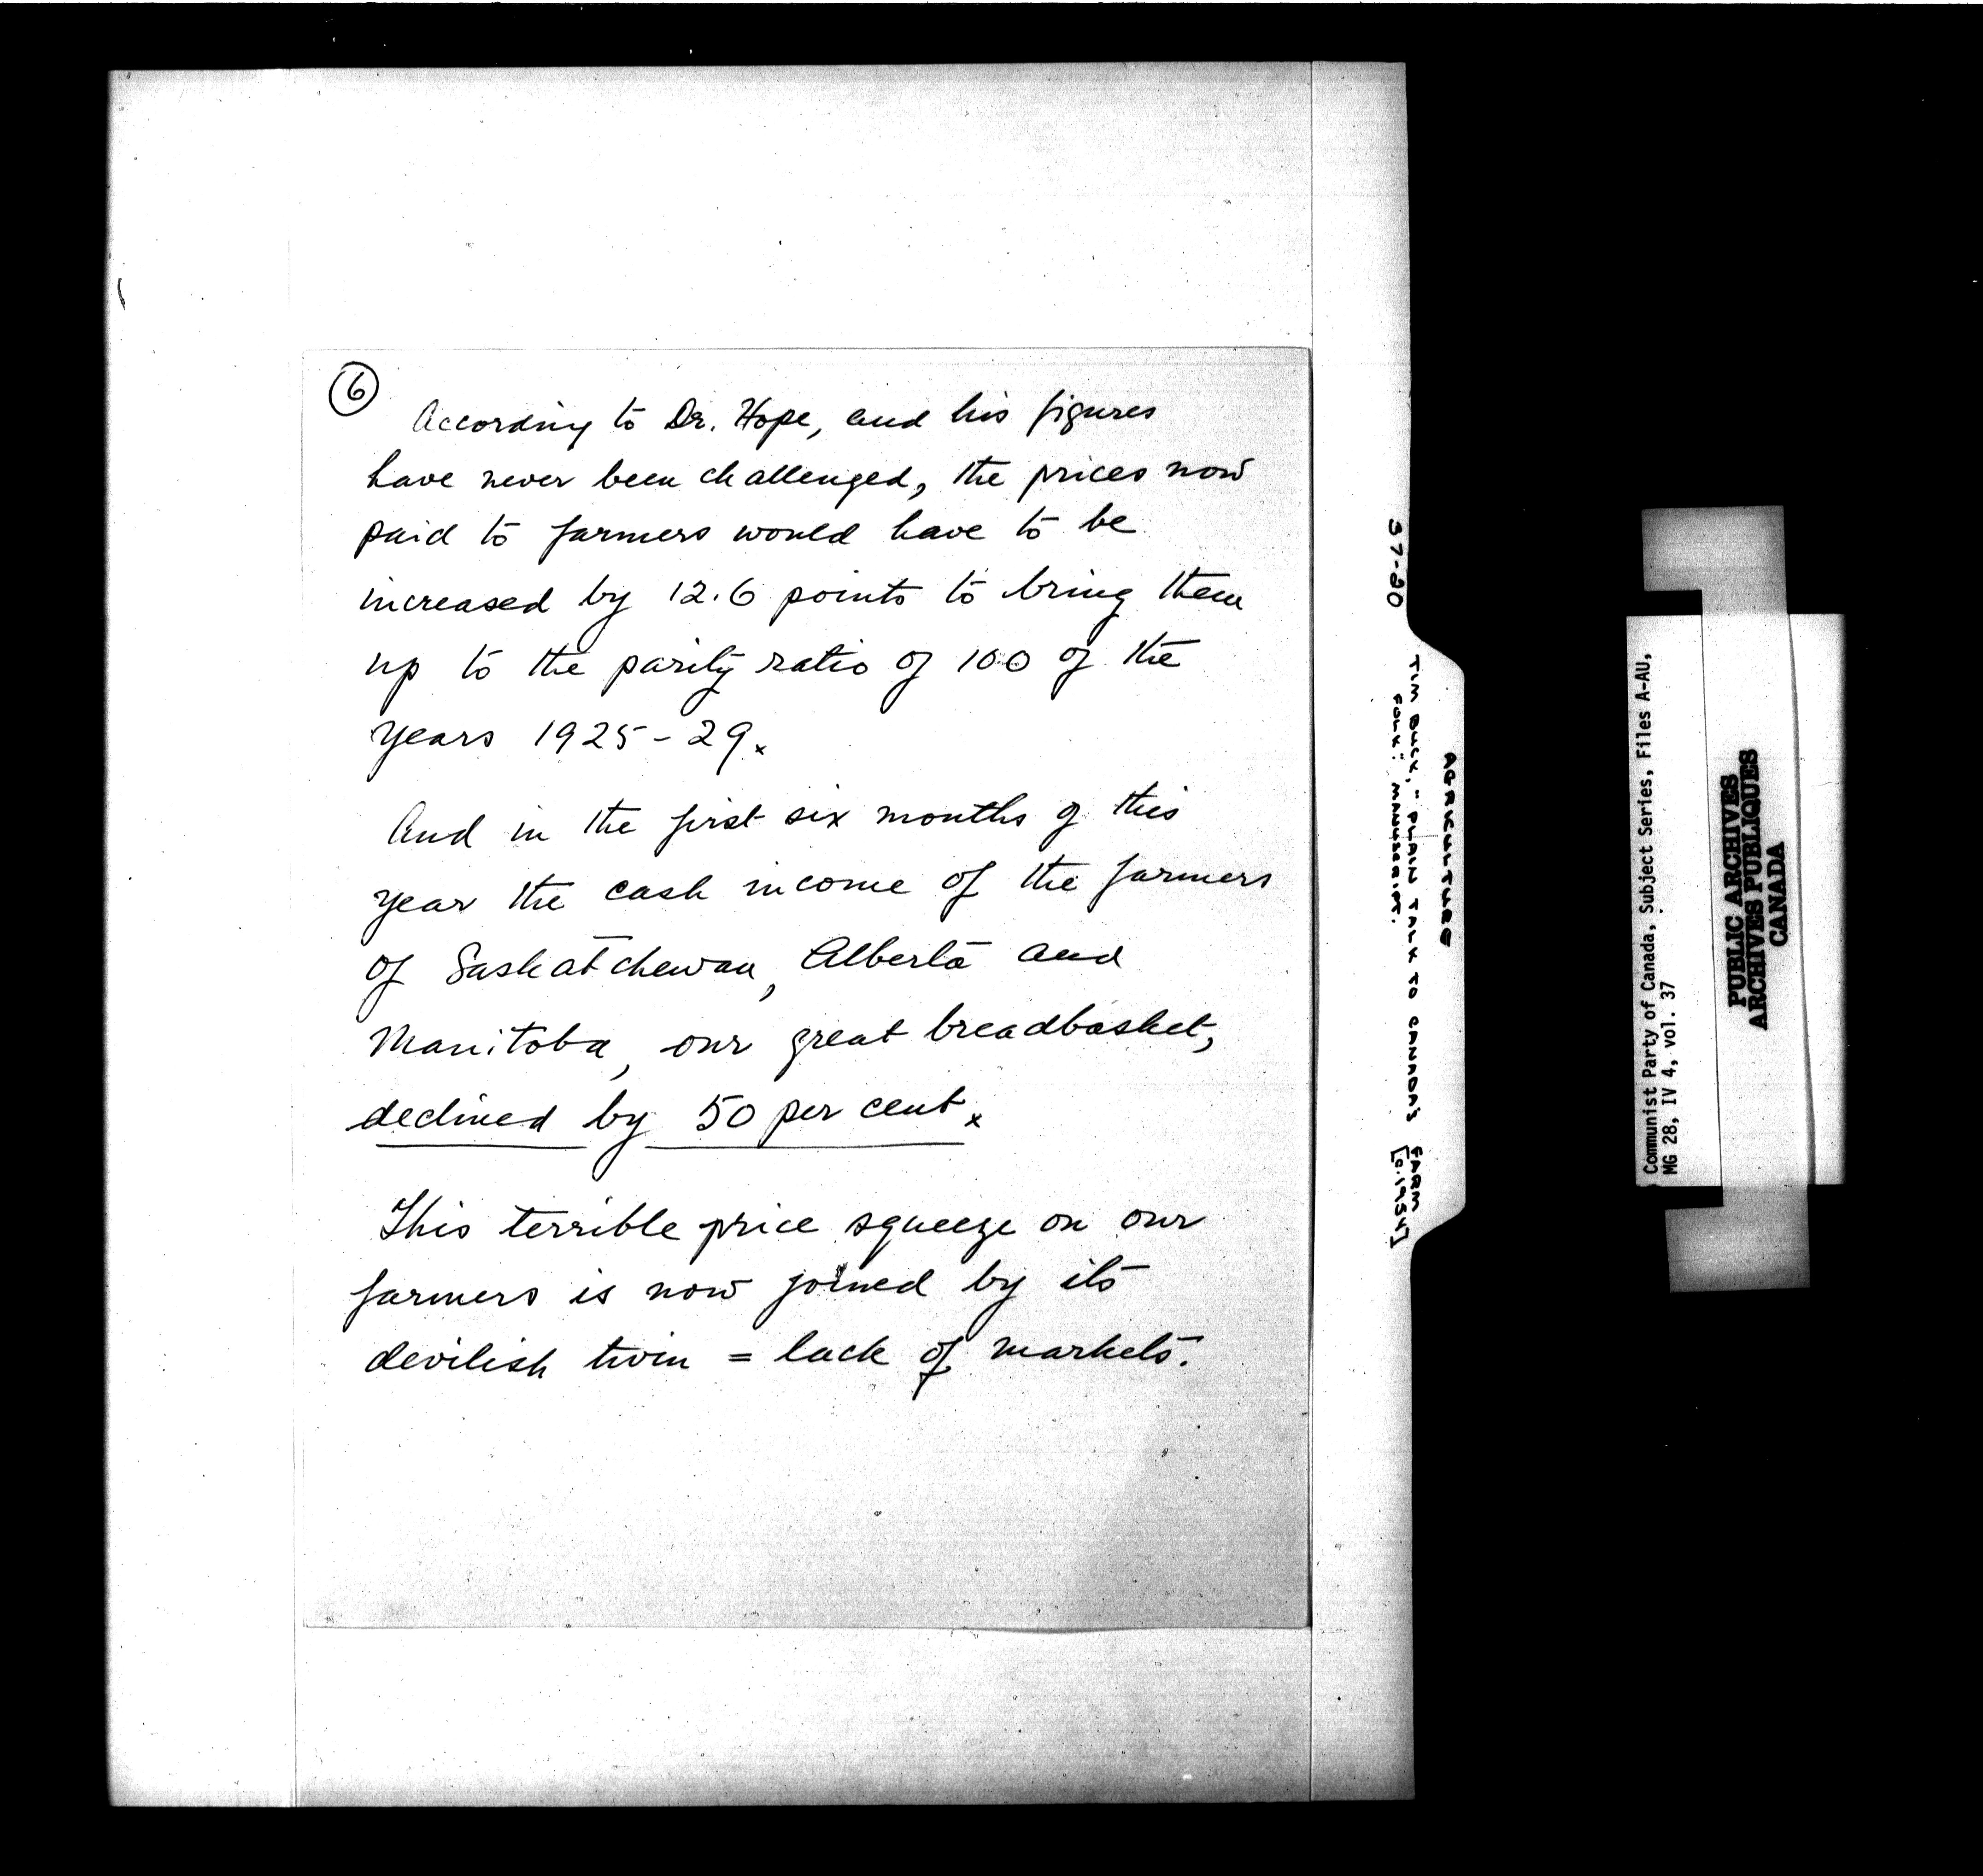 6
According to Dr. Hope, and his figures
have never been challenged, the prices now
paid to farmers would have to be
increased by 12.6 points to bring them
up to the parity ratio of 100 of the
years 1925-29x
And in the first six months of this
year the cash income of the farmers
of Saskatchewan, Alberta and
Manitoba, our great breadbasket,
declined by 50 per cent x
This terrible price squeeze on our
farmers is now joined by its
devilish twin = lack of markets.
37-20
AGRICULTURE
TIM BUCK, "PLAIN TALK TO CANADA'S FARM
FOLK": MANUSCRIPT. [c.1954]
Communist Party of Canada, Subject Series, Files A-AU,
MG 28, IV 4, vol. 37
PUBLIC ARCHIVES
ARCHIVES PUBLIQUES
CANADA